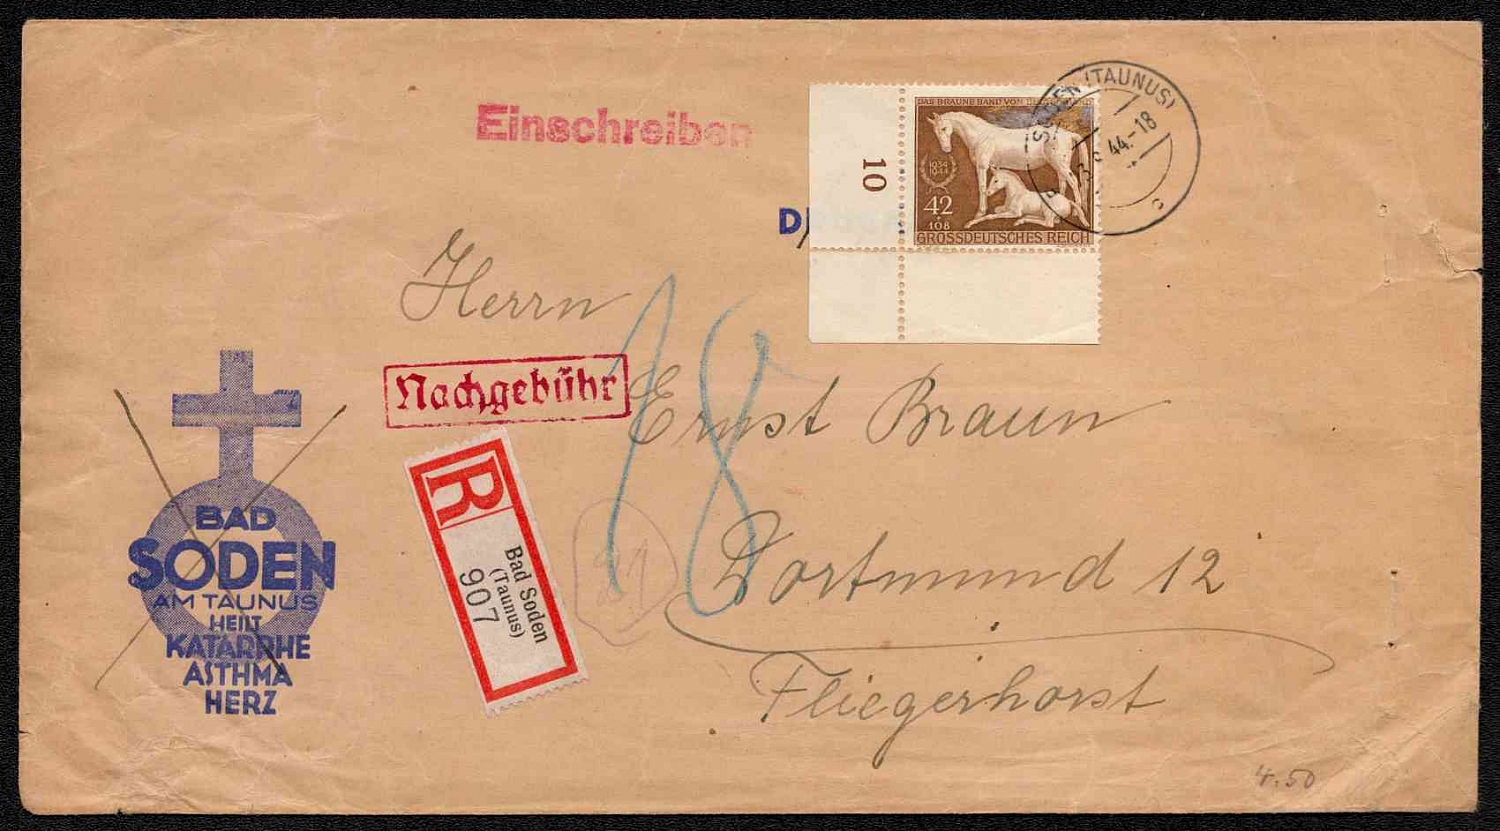 Einschreiben
DAS BRAUNE BAND VON
10
1934
1944
42
+
108
GROSSDEUTSCHES REICH
SODEN (TAUNUS)
44.-18
c
Herrn
Nachgebühr
18
Ernst Braun
R
Bad Soden
(Taunus)
907
Dortmund 12
Fliegerhorst
BAD
SODEN
AM TAUNUS
HEILT
KATARRHE
ASTHMA
HERZ
4.50